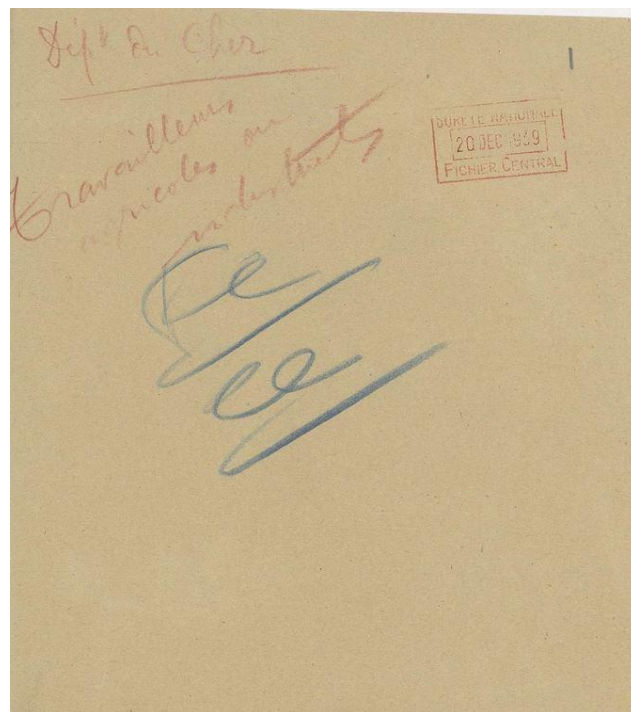 Dépt du Cher
Travailleurs
agricoles ou
industriels
SURETÉ NATIONALE
20 DEC 1939
FICHIER CENTRAL